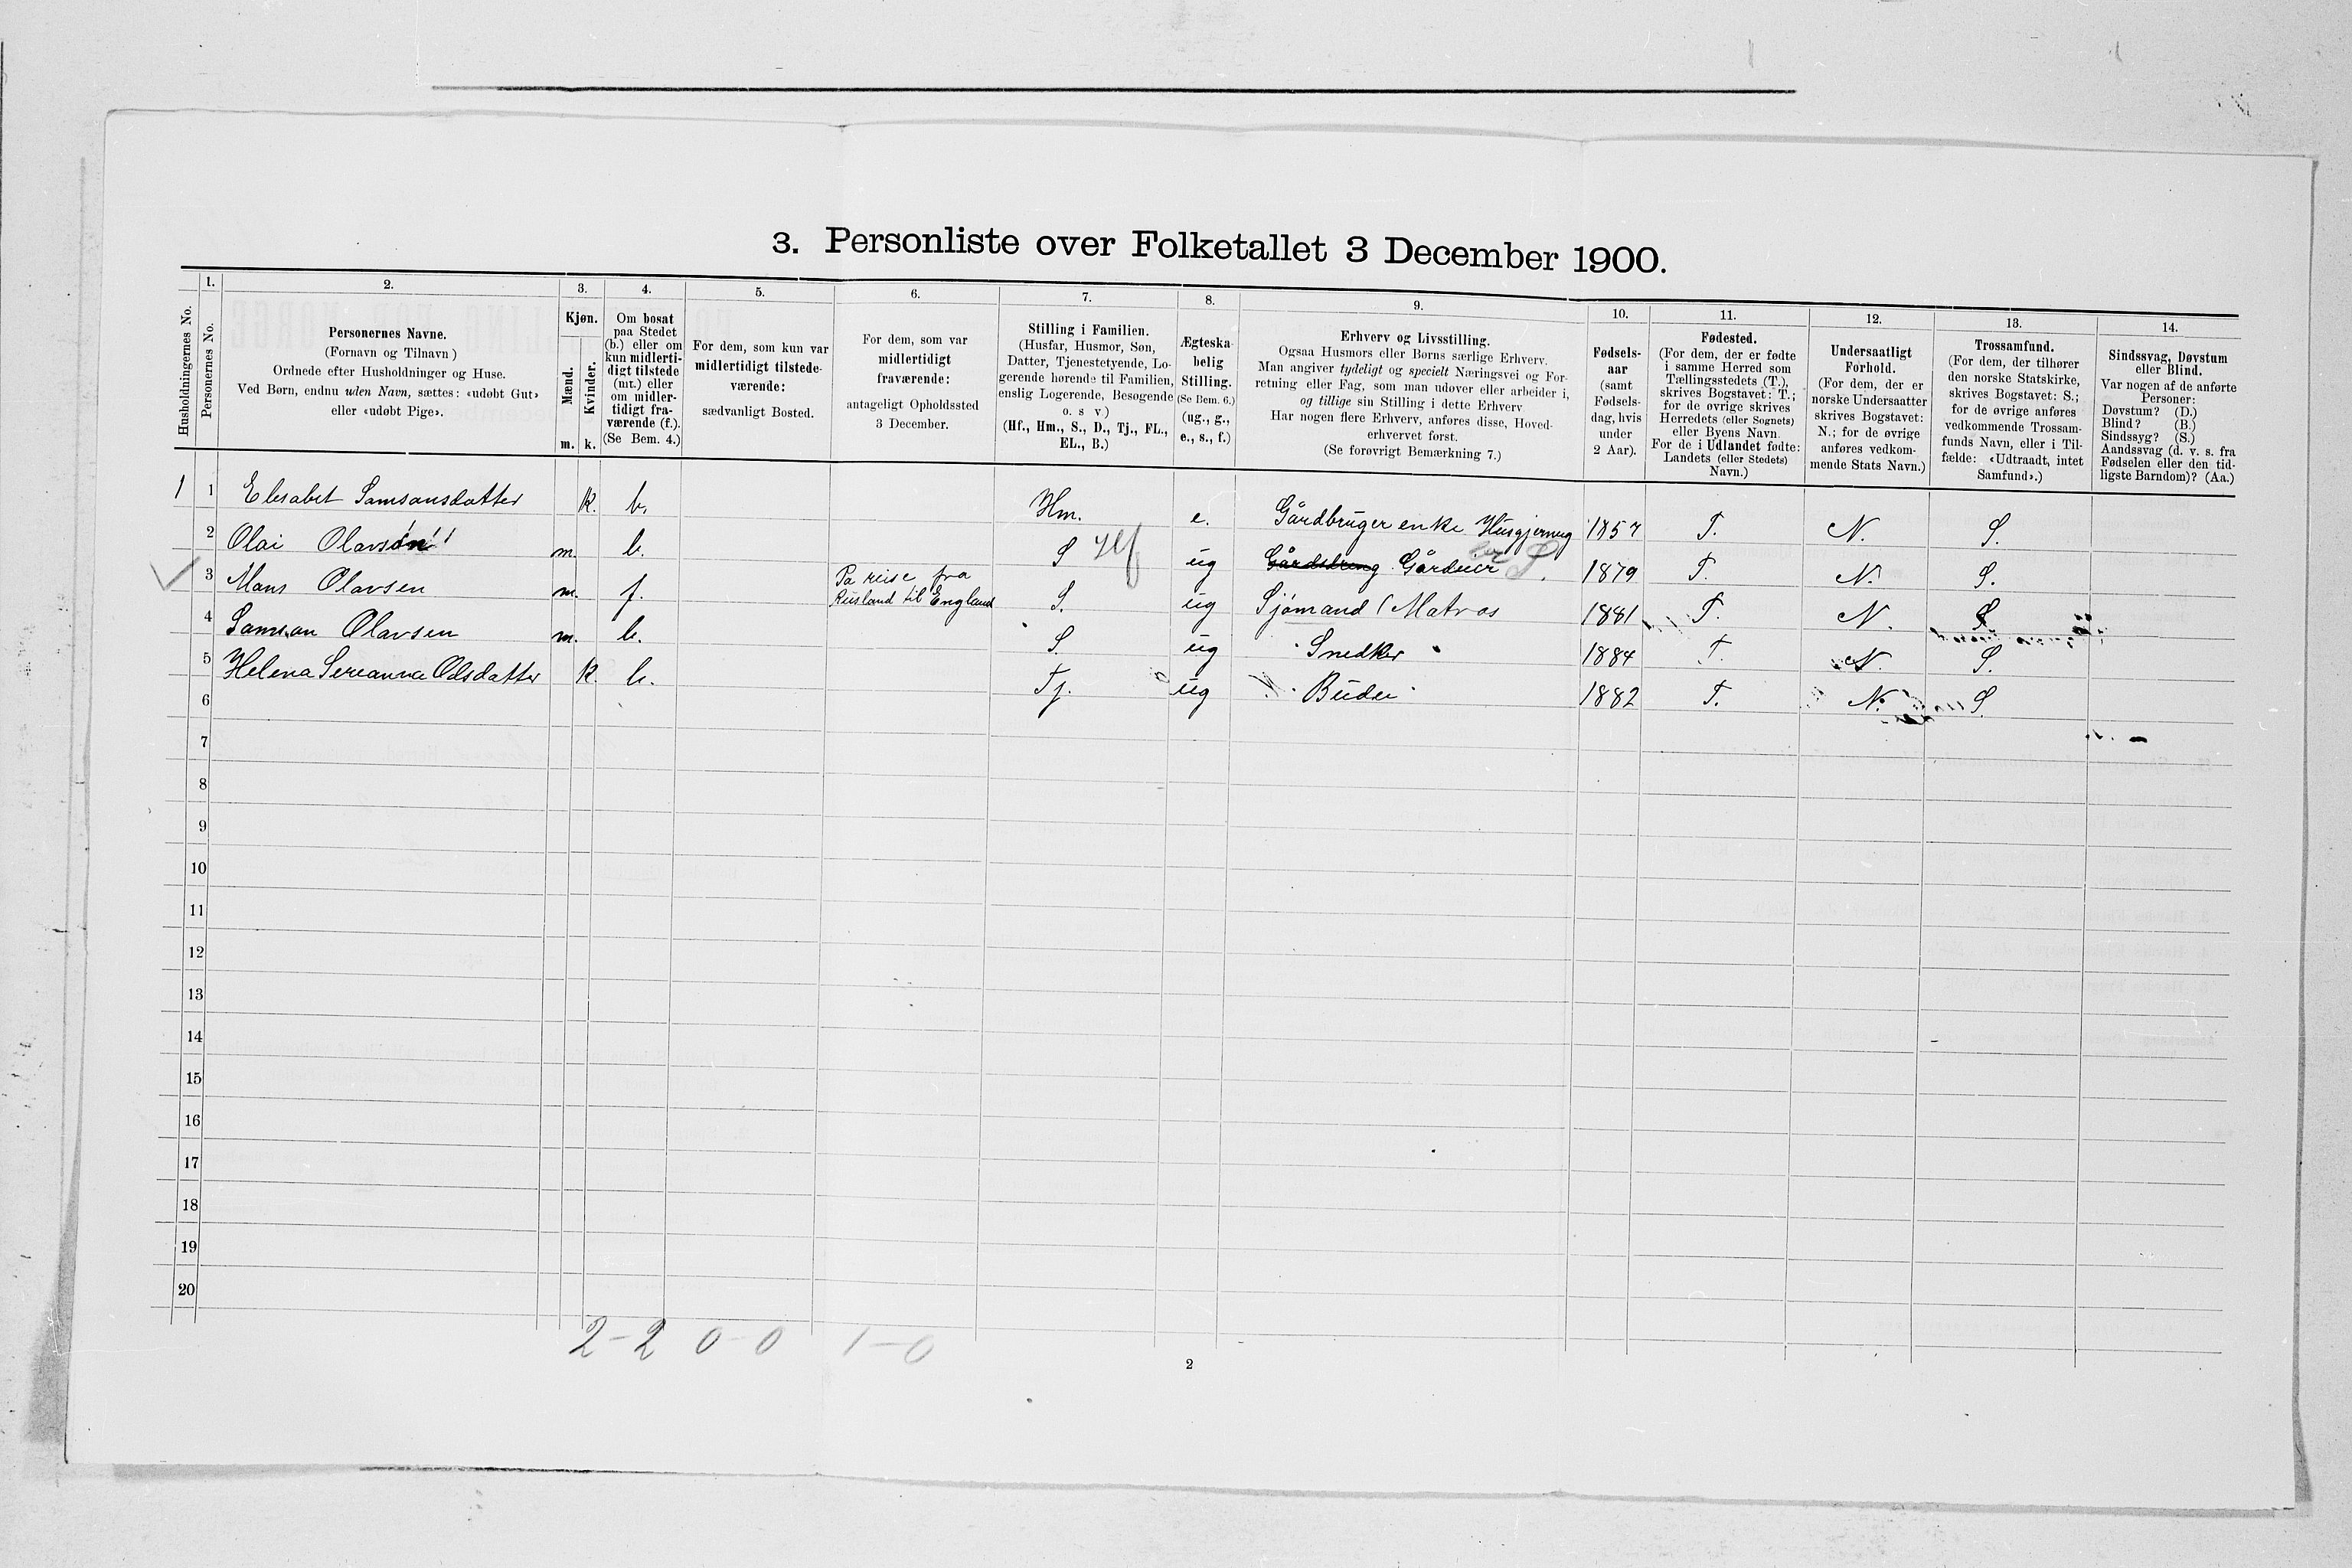 3. Personliste over Folketallet 3 December 1900.
Husholdningernes No.
1.
Personernes No.
2.
Personernes Navne.
(Fornavn og Tilnavn)
Ordnede efter Husholdninger og Huse.
Ved Børn, endnu uden Navn, sættes: «udøbt Gut»
eller «udøbt Pige».
3.
Kjøn.
Mænd.
Kvinder.
m. k.
4.
Om bosat
paa Stedet
(b.) eller om
kun midlerti-
digt tilstede
(mt.) eller
om midler-
tidigt fra-
værende (f.).
(Se Bem. 4.)
5.
For dem, som kun var
midlertidigt tilstede-
værende:
sædvanligt Bosted.
6.
For dem, som var
midlertidigt
fraværende:
antageligt Opholdssted
3 December.
7.
Stilling i Familien.
(Husfar, Husmor, Søn,
Datter, Tjenestetyende, Lo-
gerende hørende til Familien,
enslig Logerende, Besøgende
o. s v)
(Hf., Hm., S., D., Tj., FL.,
EL., B.)
8.
Ægteska-
belig
Stilling.
(Se Bem. 6.)
(ug., g.,
e., s., f.)
9.
Erhverv og Livsstilling.
Ogsaa Husmors eller Børns særlige Erhverv.
Man angiver tydeligt og specielt Næringsvei og For-
retning eller Fag, som man udøver eller arbeider i,
og tillige sin Stilling i dette Erhverv.
Har nogen flere Erhverv, anføres disse, Hoved-
erhvervet først.
(Se forøvrigt Bemærkning 7.)
10.
Fødsels-
aar
(samt
Fødsels-
dag, hvis
under
2 Aar).
11.
Fødested.
(For dem, der er fødte
i samme Herred som
Tællingsstedets (T.),
skrives Bogstavet: T.;
for de øvrige skrives
Herredets (eller Sognets)
eller Byens Navn.
For de i Udlandet fødte:
Landets (eller Stedets)
Navn.)
12.
Undersaatligt
Forhold.
(For dem, der er
norske Undersaatter
skrives Bogstavet:
N.; for de øvrige
anføres vedkom-
mende Stats Navn.)
13.
Trossamfund.
(For dem, der tilhører
den norske Statskirke,
skrives Bogstavet: S.;
for de øvrige anføres
vedkommende Trossam-
funds Navn, eller i Til-
fælde: «Udtraadt, intet
Samfund».)
14.
Sindssvag, Døvstum
eller Blind.
Var nogen af de anførte
Personer:
Døvstum? (D.)
Blind? (B.)
Sindssyg? (S.)
Aandssvag (d. v. s. fra
Fødselen eller den tid-
ligste Barndom)? (Aa.)
1 1 Elesabet Samsonsdatter k. b. Hm. e. Gårdbruger enke Husgjerning 1857 T. N. S.
2 Olai Olavsøn m. b. S Hf ug Gårdsdreng Gårdeier 1879 T. N. S.
3 Mons Olavsen m. f. På reise fra Rusland til England S. ug Sjømand (Matros 1881 T. N. S.
4 Samson Olavsen m. b. S. ug Snedker 1884 T. N. S.
5 Helena Sereanna Olsdatter k. b. Tj. ug Budei 1882 T. N. S.
6
7
8
9
10
11
12
13
14
15
16
17
18
19
20
2-2 0-0 1-0
2